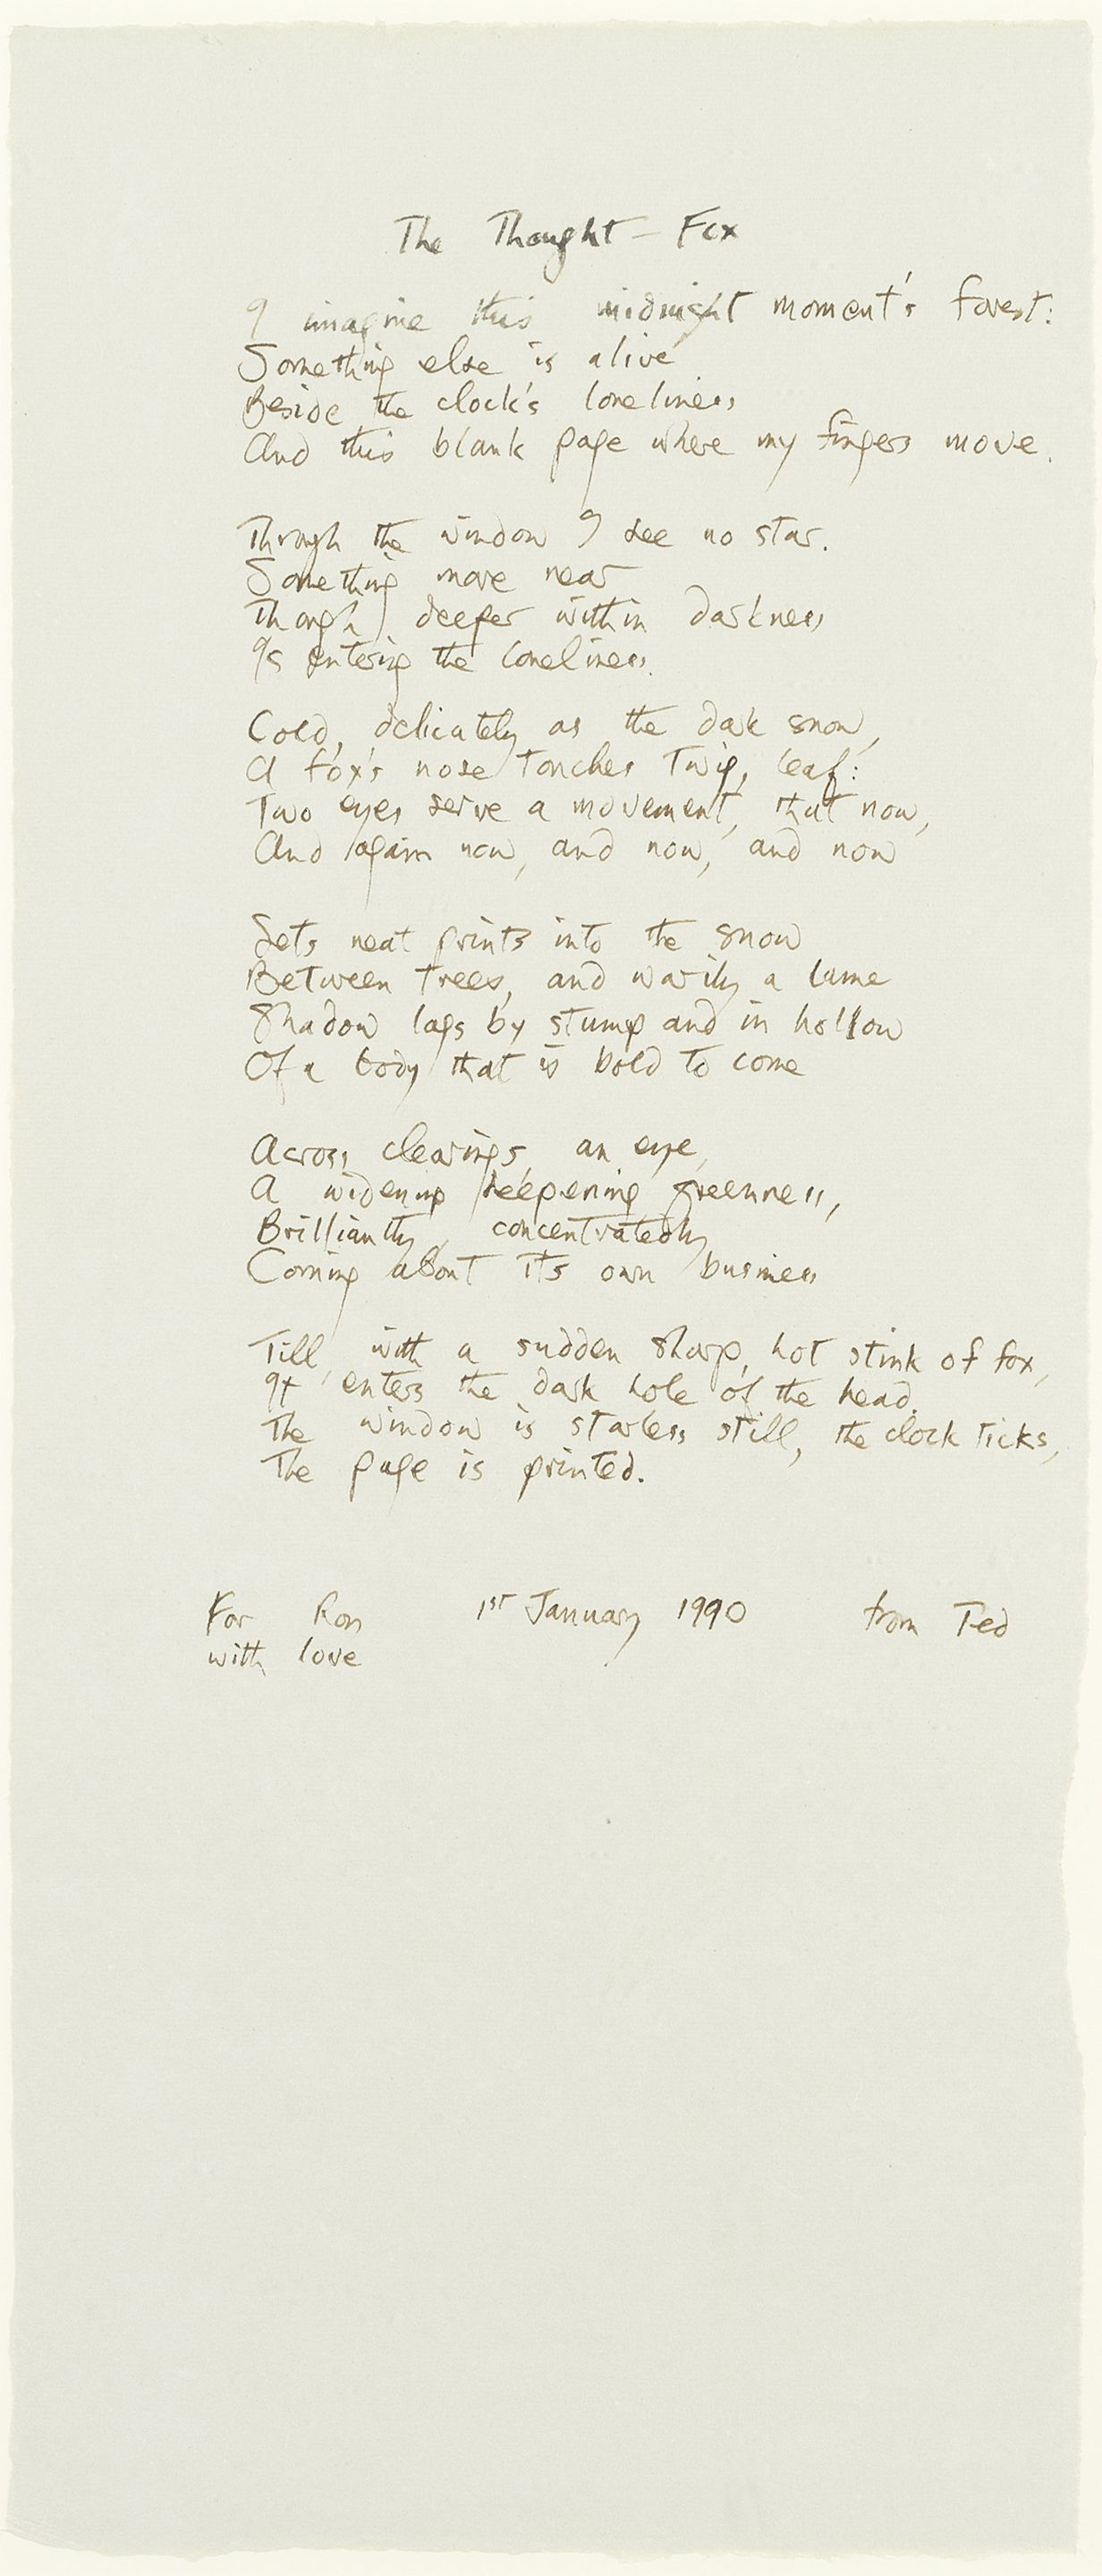 The Thought-Fox
I imagine this midnight moment's forest:
Something else is alive
Beside the clock's loneliness
And this blank page where my fingers move.
Through the window I see no star.
Something more near
Though deeper within darkness
Is entering the loneliness.
Cold, delicately as the dark snow,
A fox's nose touches twig, leaf:
Two eyes serve a movement, that now,
And again now, and now, and now
Sets neat prints into the snow
Between trees, and warily a lame
Shadow lags by stump and in hollow
Of a body that is bold to come
Across clearings, an eye,
A widening deepening greenness,
Brilliantly, concentratedly
Coming about its own business
Till, with a sudden sharp, hot stink of fox,
It enters the dark hole of the head.
The window is starless still, the clock ticks,
The page is printed.
For Ron 1st January 1990 from Ted
with love